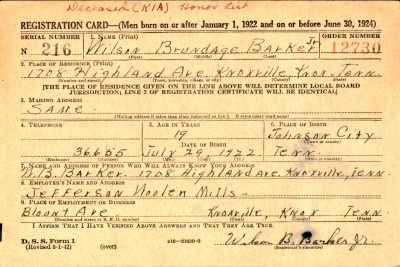 Deceased (KIA) Honor List
REGISTRATION CARD—(Men born on or after January 1, 1922 and on or before June 30, 1924)
SERIAL NUMBER 1. NAME (Print) ORDER NUMBER
N 216 Wilson Brundage Barker Jr. 12730
2. PLACE OF RESIDENCE (Print)
1708 Highland Ave. Knoxville, Knox. Tenn.
(Number and street) (Town, township, village, or city) (County) (State)
[THE PLACE OF RESIDENCE GIVEN ON THE LINE ABOVE WILL DETERMINE LOCAL BOARD
JURISDICTION; LINE 2 OF REGISTRATION CERTIFICATE WILL BE IDENTICAL]
3. MAILING ADDRESS
SAME
(Mailing address if other than place indicated on line 2. If same insert word same)
4. TELEPHONE 5. AGE IN YEARS 6. PLACE OF BIRTH
19 Johnson City
DATE OF BIRTH
36655 July 29 1922 Tenn.
7. NAME AND ADDRESS OF PERSON WHO WILL ALWAYS KNOW YOUR ADDRESS
W.B. Barker. 1708 Highland Ave. Knoxville, Tenn.
8. EMPLOYER'S NAME AND ADDRESS
Jefferson Woolen Mills
9. PLACE OF EMPLOYMENT OR BUSINESS
Blount Ave Knoxville, Knox Tenn.
(Number and street or R. F. D. number) (Town) (County) (State)
I AFFIRM THAT I HAVE VERIFIED ABOVE ANSWERS AND THAT THEY ARE TRUE.
D. S. S. Form 1
(Revised 6-1-42) (over) Wilson B. Barker Jr.
(Registrant's signature)